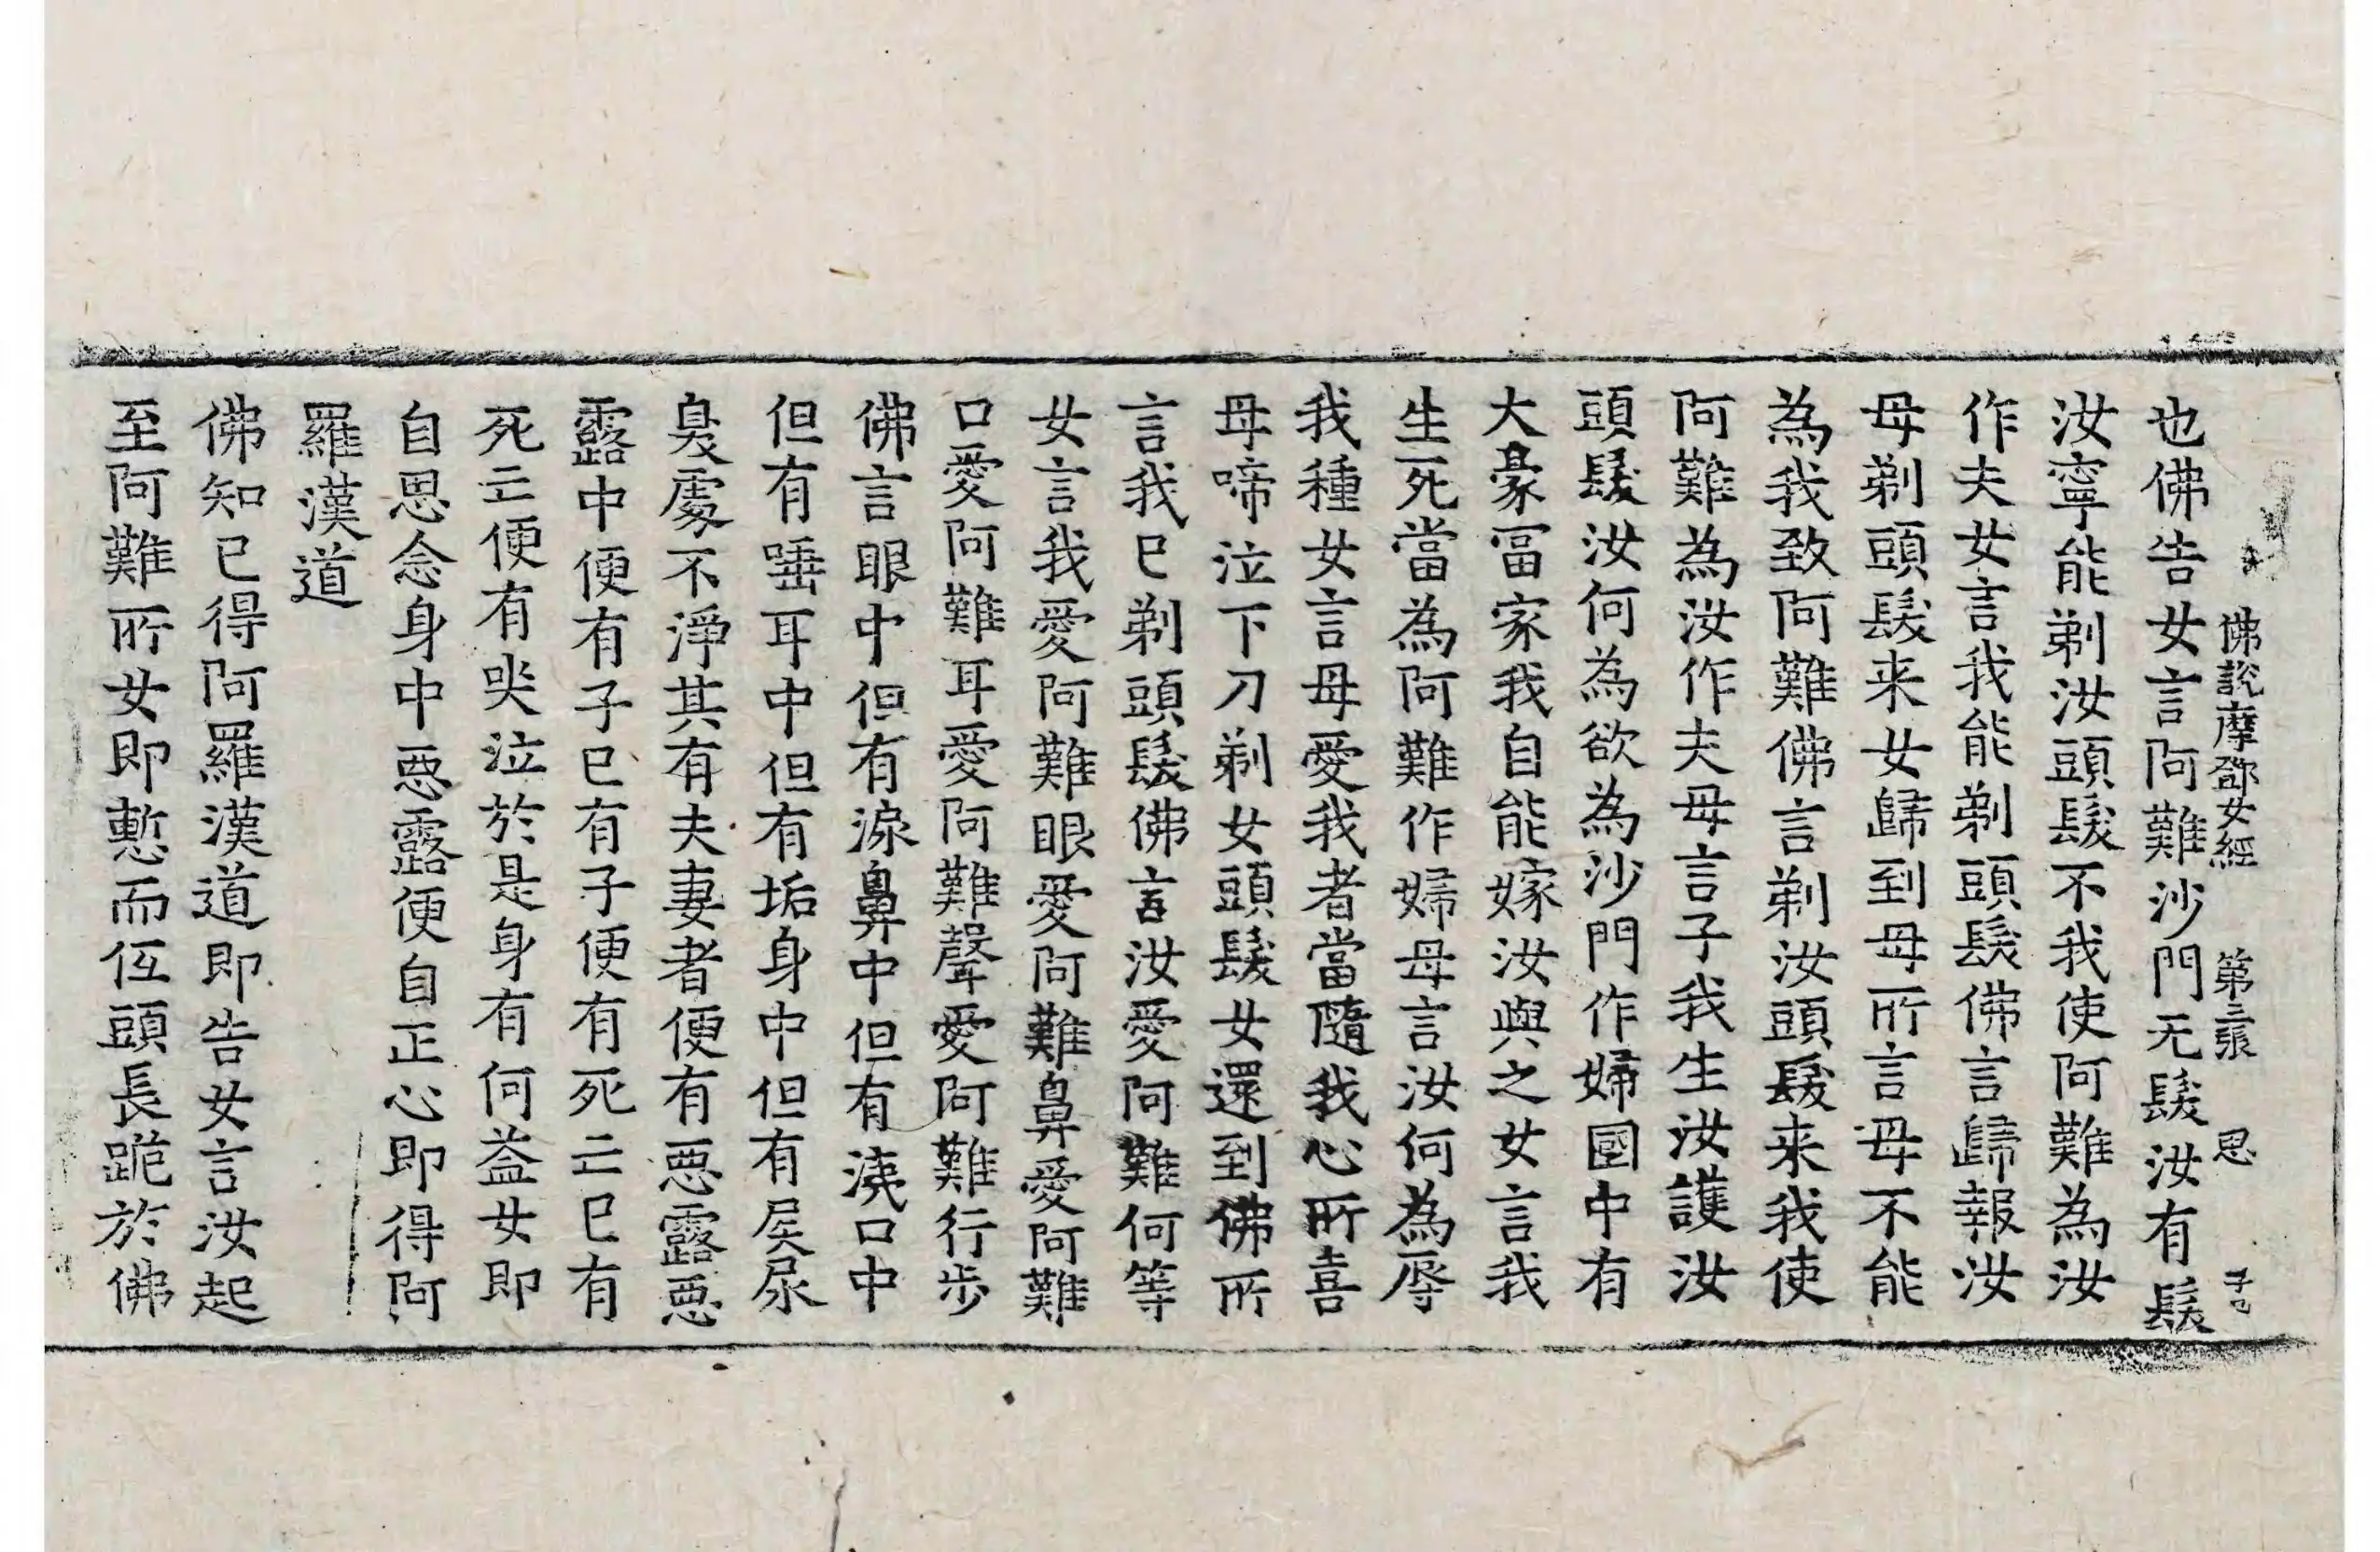 佛說摩鄧女經 第三張 思
也佛告女言阿難沙門无髮汝有髮
汝寧能剃汝頭髮不我使阿難為汝
作夫女言我能剃頭髮佛言歸報汝
母剃頭髮来女歸到母所言母不能
為我致阿難佛言剃汝頭髮来我使
阿難為汝作夫母言子我生汝護汝
頭髮汝何為欲為沙門作婦國中有
大豪冨家我自能嫁汝與之女言我
生死當為阿難作婦母言汝何為辱
我種女言母愛我者當隨我心所喜
母啼泣下刀剃女頭髮女還到佛所
言我已剃頭髮佛言汝愛阿難何等
女言我愛阿難眼愛阿難鼻愛阿難
口愛阿難耳愛阿難聲愛阿難行步
佛言眼中但有淚鼻中但有洟口中
但有唾耳中但有垢身中但有屎尿
臭處不淨其有夫妻者便有惡露惡
露中便有子已有子便有死亡已有
死亡便有哭泣於是身有何益女即
自思念身中惡露便自正心即得阿
羅漢道
佛知已得阿羅漢道即告女言汝起
至阿難所女即慙而低頭長跪於佛